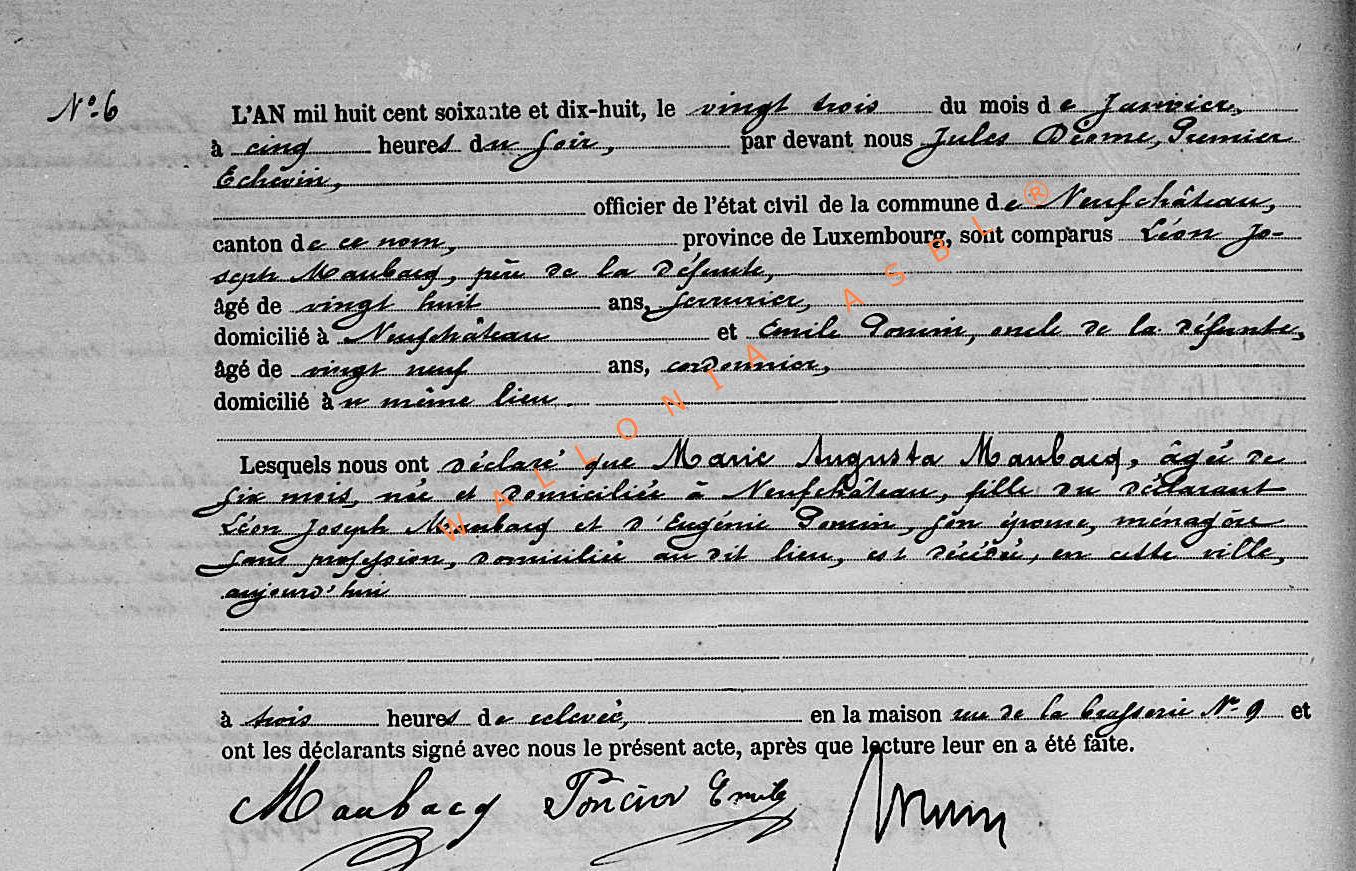 N.° 6
L'AN mil huit cent soixante et dix-huit, le vingt trois du mois de Janvier,
à cinq heures du soir, par devant nous Jules Déome, Premier
Echevin,
officier de l'état civil de la commune de Neufchâteau,
canton de ce nom, province de Luxembourg, sont comparus Léon Jo-
seph Maubacq, père de la défunte,
âgé de vingt huit ans, serrurier,
domicilié à Neufchâteau et Emile Poncin, oncle de la défunte,
âgé de vingt neuf ans, cordonnier,
domicilié au même lieu.
Lesquels nous ont déclaré que Marie Augusta Maubacq, âgée de
six mois, née et domiciliée à Neufchâteau, fille du déclarant
Léon Joseph Maubacq et d'Eugénie Poncin, son épouse, ménagère
sans profession, domiciliée au dit lieu, est décédée, en cette ville,
aujourd'hui
à trois heures de relevée, en la maison rue de la brasserie N.° 9 et
ont les déclarants signé avec nous le présent acte, après que lecture leur en a été faite.
Maubacq Poncin Emile
WALLONIA ASBL ®